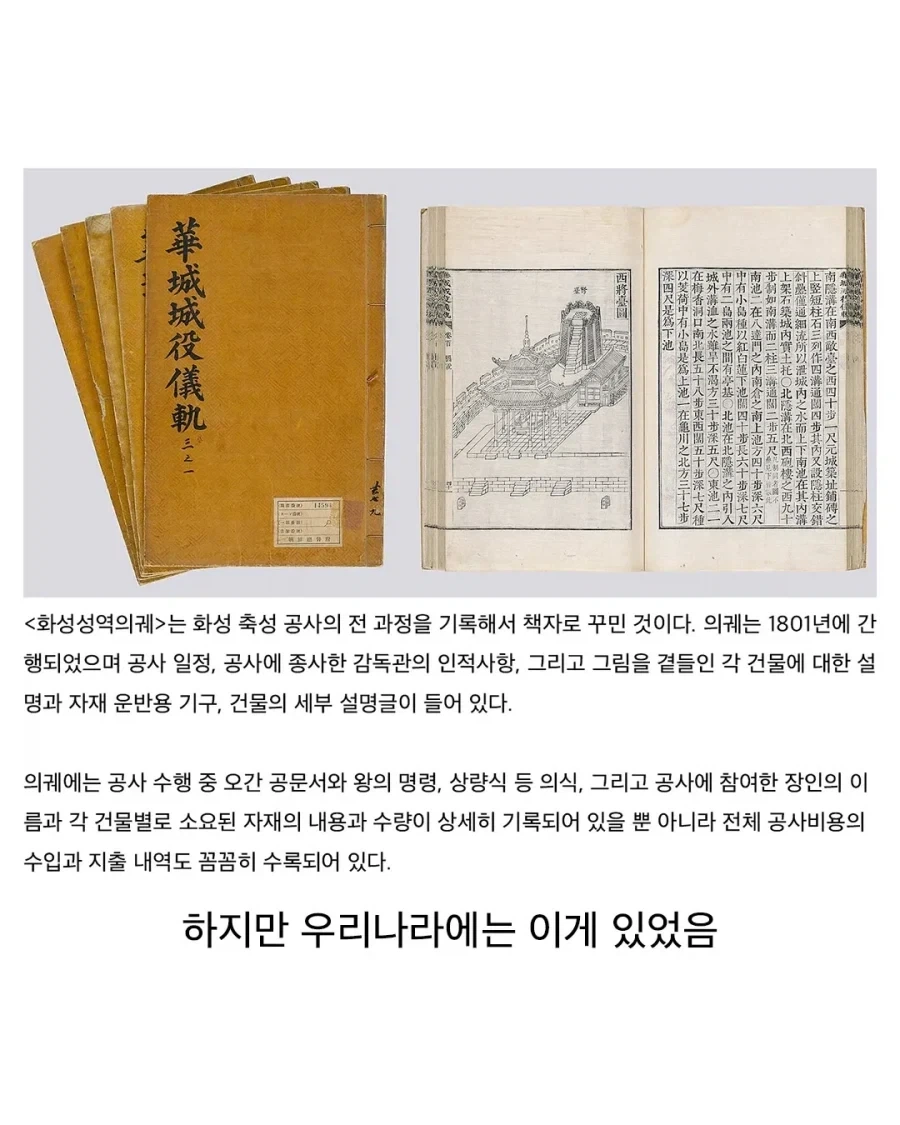 華城城役儀軌
三之一
西將臺圖
弩臺
南隱溝在南西敵臺之西四十步一尺元城築址鋪磚之
上竪短柱石三列作四溝通闊四步其內又設隱柱交錯
斜疊僅通細流所以泄城內之水而上下南池在其內溝
上架石築城內實土托〇北隱溝在北西砲樓之西九十
步制如南溝而二柱三溝通闊二步五尺
南池二在八達門之內南倉之南上池方四十步深六尺
中有小島種以紅白蓮下池闊四十步長六十步深七尺
中有二島兩池之間有亭基〇北池在北隱溝之內引入
城外溝洫之水雖旱不渴方三十步深五尺〇東池二一
在梅香洞口南北長五十八步東西闊五十步深七尺種
以芰荷中有小島是爲上池一在龜川之北方三十七步
深四尺是爲下池
<화성성역의궤>는 화성 축성 공사의 전 과정을 기록해서 책자로 꾸민 것이다. 의궤는 1801년에 간
행되었으며 공사 일정, 공사에 종사한 감독관의 인적사항, 그리고 그림을 곁들인 각 건물에 대한 설
명과 자재 운반용 기구, 건물의 세부 설명글이 들어 있다.
의궤에는 공사 수행 중 오간 공문서와 왕의 명령, 상량식 등 의식, 그리고 공사에 참여한 장인의 이
름과 각 건물별로 소요된 자재의 내용과 수량이 상세히 기록되어 있을 뿐 아니라 전체 공사비용의
수입과 지출 내역도 꼼꼼히 수록되어 있다.
하지만 우리나라에는 이게 있었음